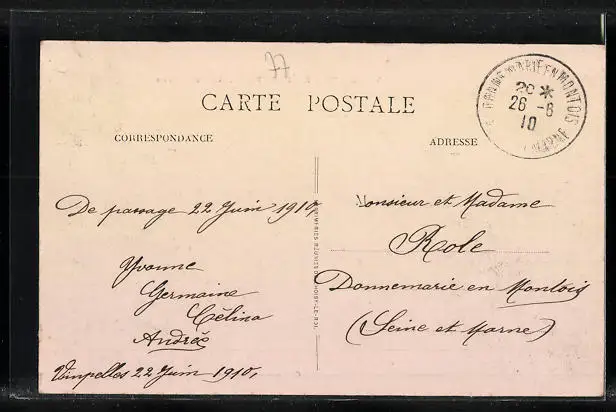 77
CARTE POSTALE
CORRESPONDANCE
ADRESSE
DONNEMARIE EN MONTOIS
26 -6
10
MARNE
De passage 22 Juin 1910,
Yvonne
Germaine
Célina
Andrée
Vimpelles 22 Juin 1910,
Monsieur et Madame
Role
Donnemarie en Montois
(Seine et Marne)